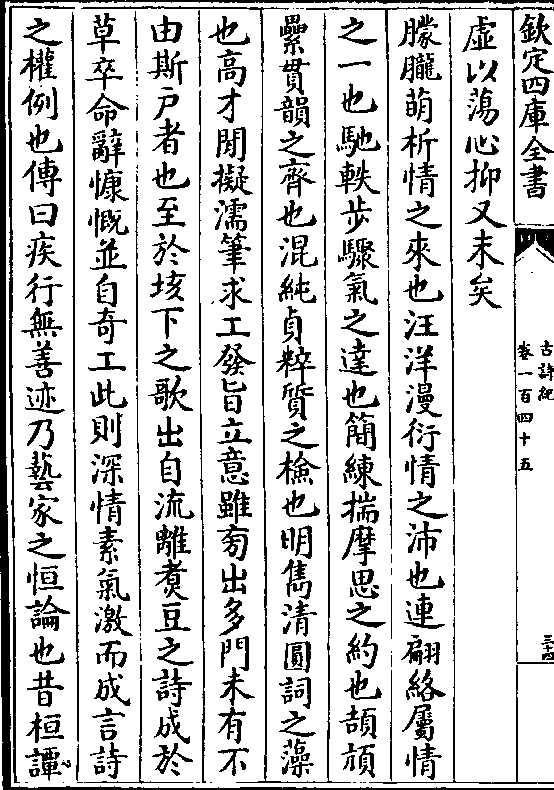 欽定四庫全書
古詩紀
卷一百四十五
三十四
虛以蕩心抑又末矣
朦朧萌析情之來也汪洋漫衍情之沛也連翩絡屬情
之一也馳軼步驟氣之達也簡練揣摩思之約也頡頏
纍貫韻之齊也混純貞粹質之檢也明雋清圓詞之藻
也高才閒擬濡筆求工發旨立意雖旁出多門未有不
由斯戶者也至於垓下之歌出自流離煑豆之詩成於
草卒命辭慷慨並自奇工此則深情素氣激而成言詩
之權例也傳曰疾行無善迹乃藝家之恒論也昔桓譚